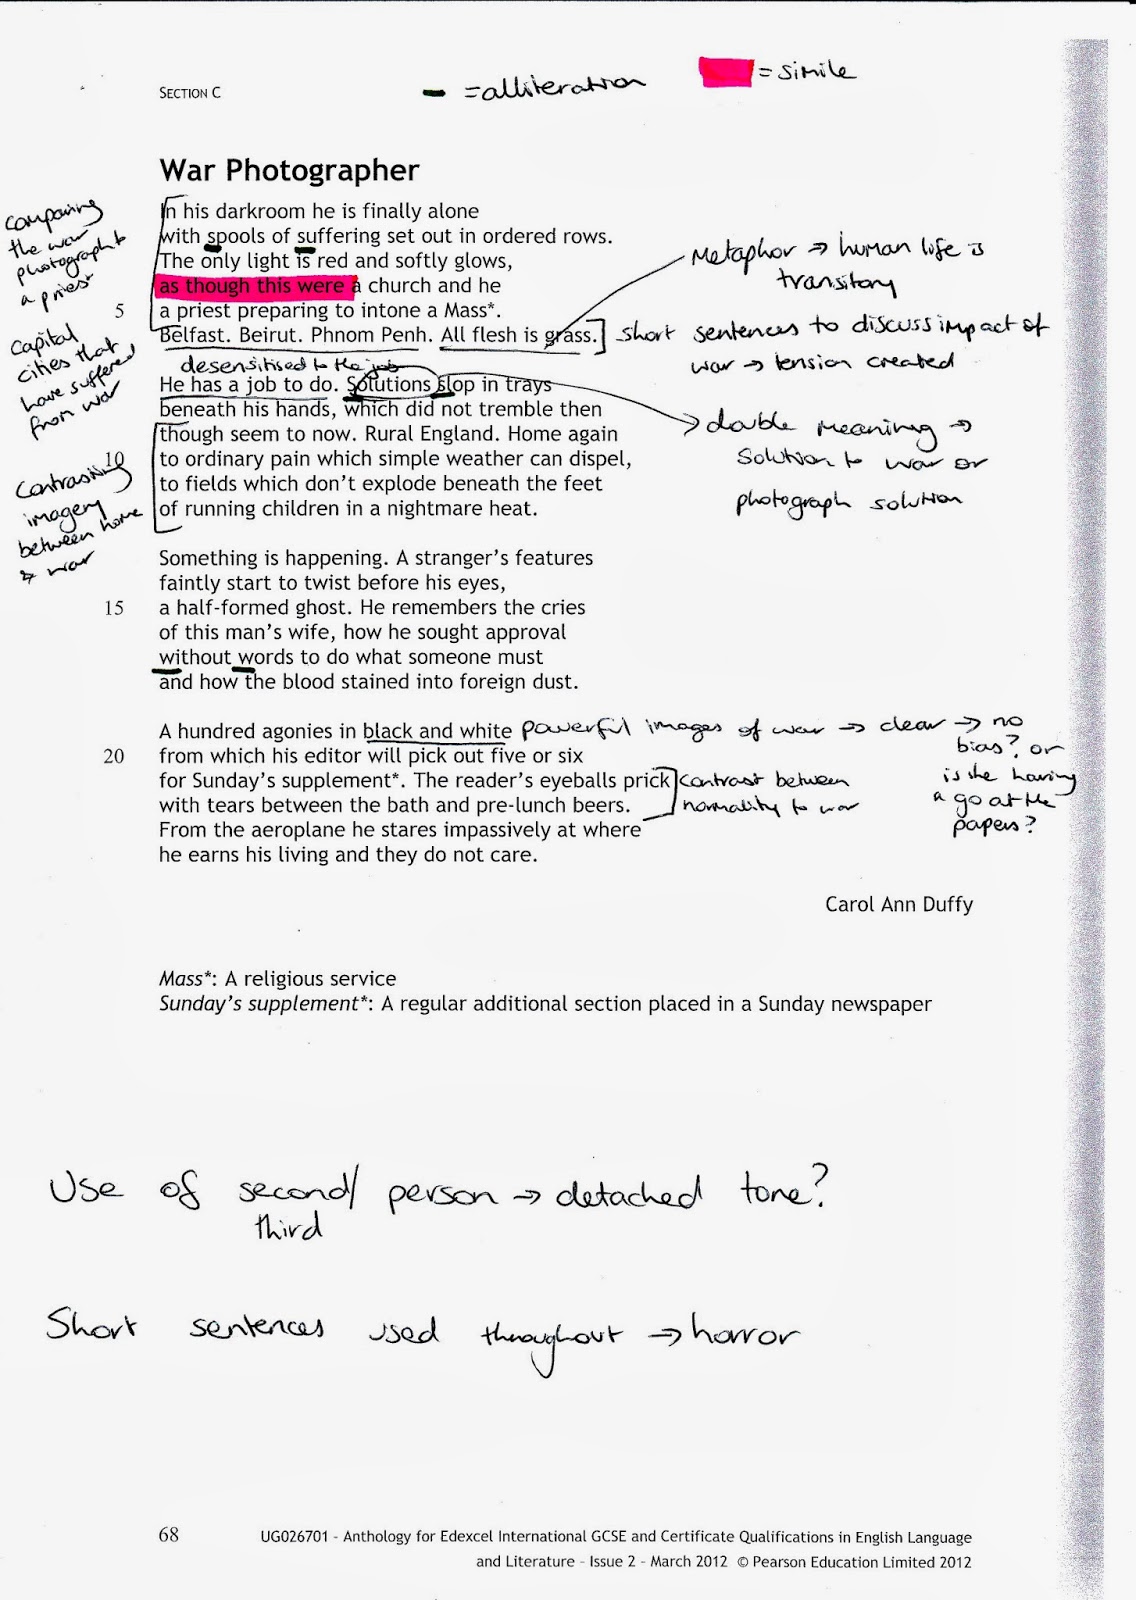 SECTION C
= alliteration
= simile
War Photographer
In his darkroom he is finally alone
with spools of suffering set out in ordered rows.
The only light is red and softly glows,
as though this were a church and he
5 a priest preparing to intone a Mass*.
Belfast. Beirut. Phnom Penh. All flesh is grass.
comparing
the war
photographer to
a priest
Metaphor → human life is
transitory
short sentences to discuss impact of
war → tension created
capital
cities that
have suffered
from war
desensitised to the job
He has a job to do. Solutions slop in trays
beneath his hands, which did not tremble then
though seem to now. Rural England. Home again
10 to ordinary pain which simple weather can dispel,
to fields which don't explode beneath the feet
of running children in a nightmare heat.
double meaning →
solution to war or
photograph solution
contrasting
imagery
between home
& war
Something is happening. A stranger's features
faintly start to twist before his eyes,
15 a half-formed ghost. He remembers the cries
of this man's wife, how he sought approval
without words to do what someone must
and how the blood stained into foreign dust.
A hundred agonies in black and white
20 from which his editor will pick out five or six
for Sunday's supplement*. The reader's eyeballs prick
with tears between the bath and pre-lunch beers.
From the aeroplane he stares impassively at where
he earns his living and they do not care.
powerful images of war → clear → no
bias? or
is she having
a go at the
papers?
contrast between
normality to war
Carol Ann Duffy
Mass*: A religious service
Sunday's supplement*: A regular additional section placed in a Sunday newspaper
Use of second/ person → detached tone?
third
Short sentences used throughout → horror
68 UG026701 - Anthology for Edexcel International GCSE and Certificate Qualifications in English Language
and Literature - Issue 2 - March 2012 © Pearson Education Limited 2012